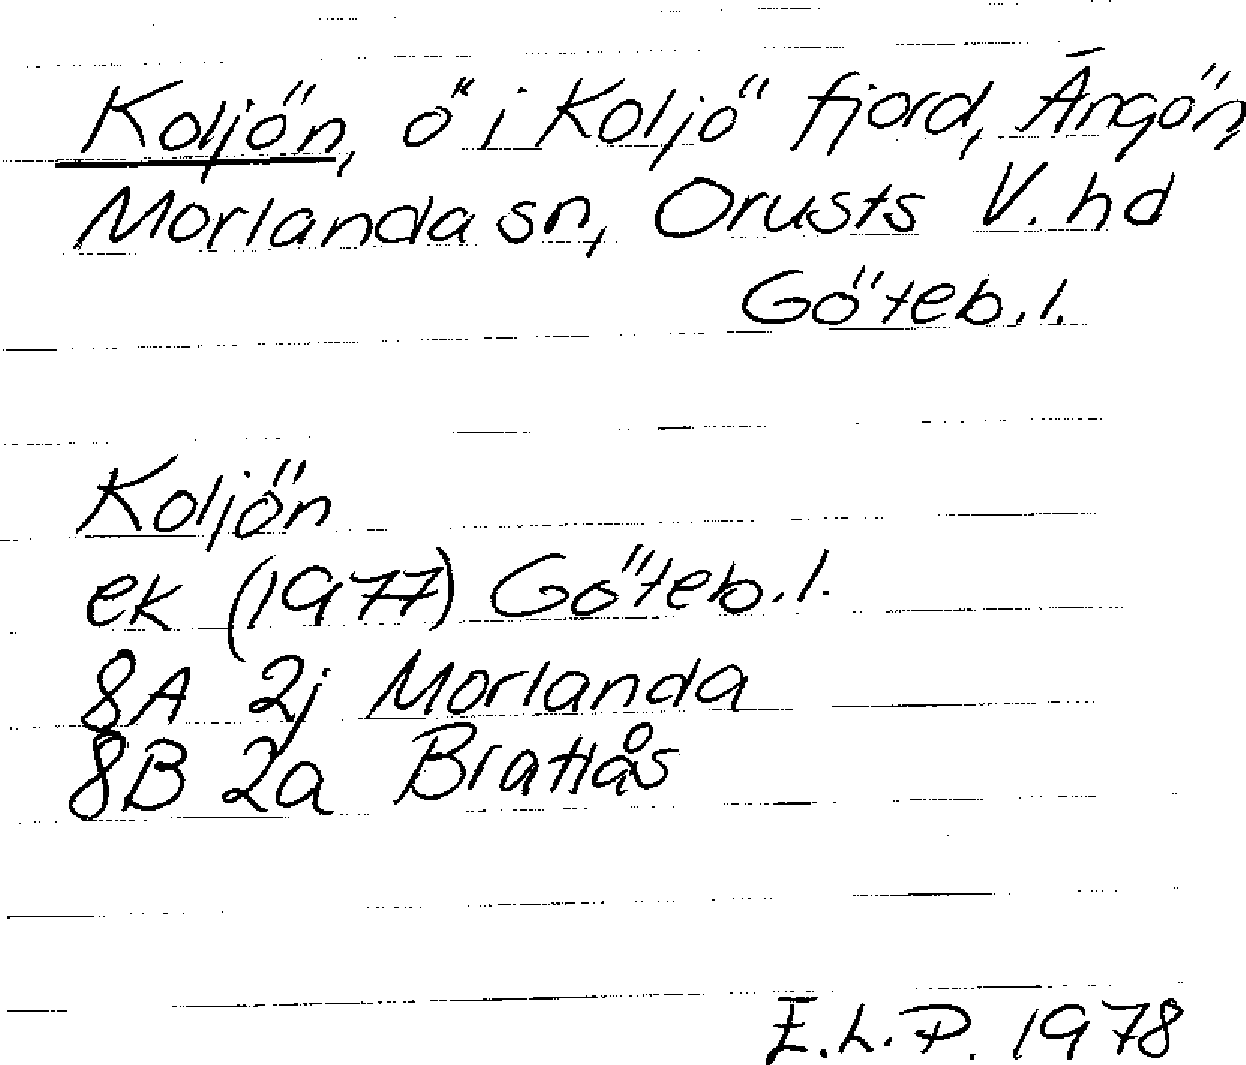 Koljön, ö i Koljö fjord, Ängön,
Morlanda sn, Orusts V. hd
Göteb. l.
Koljön
ek (1977) Göteb. l.
8A 2j Morlanda
8B 2a Brattås
E.L.P. 1978